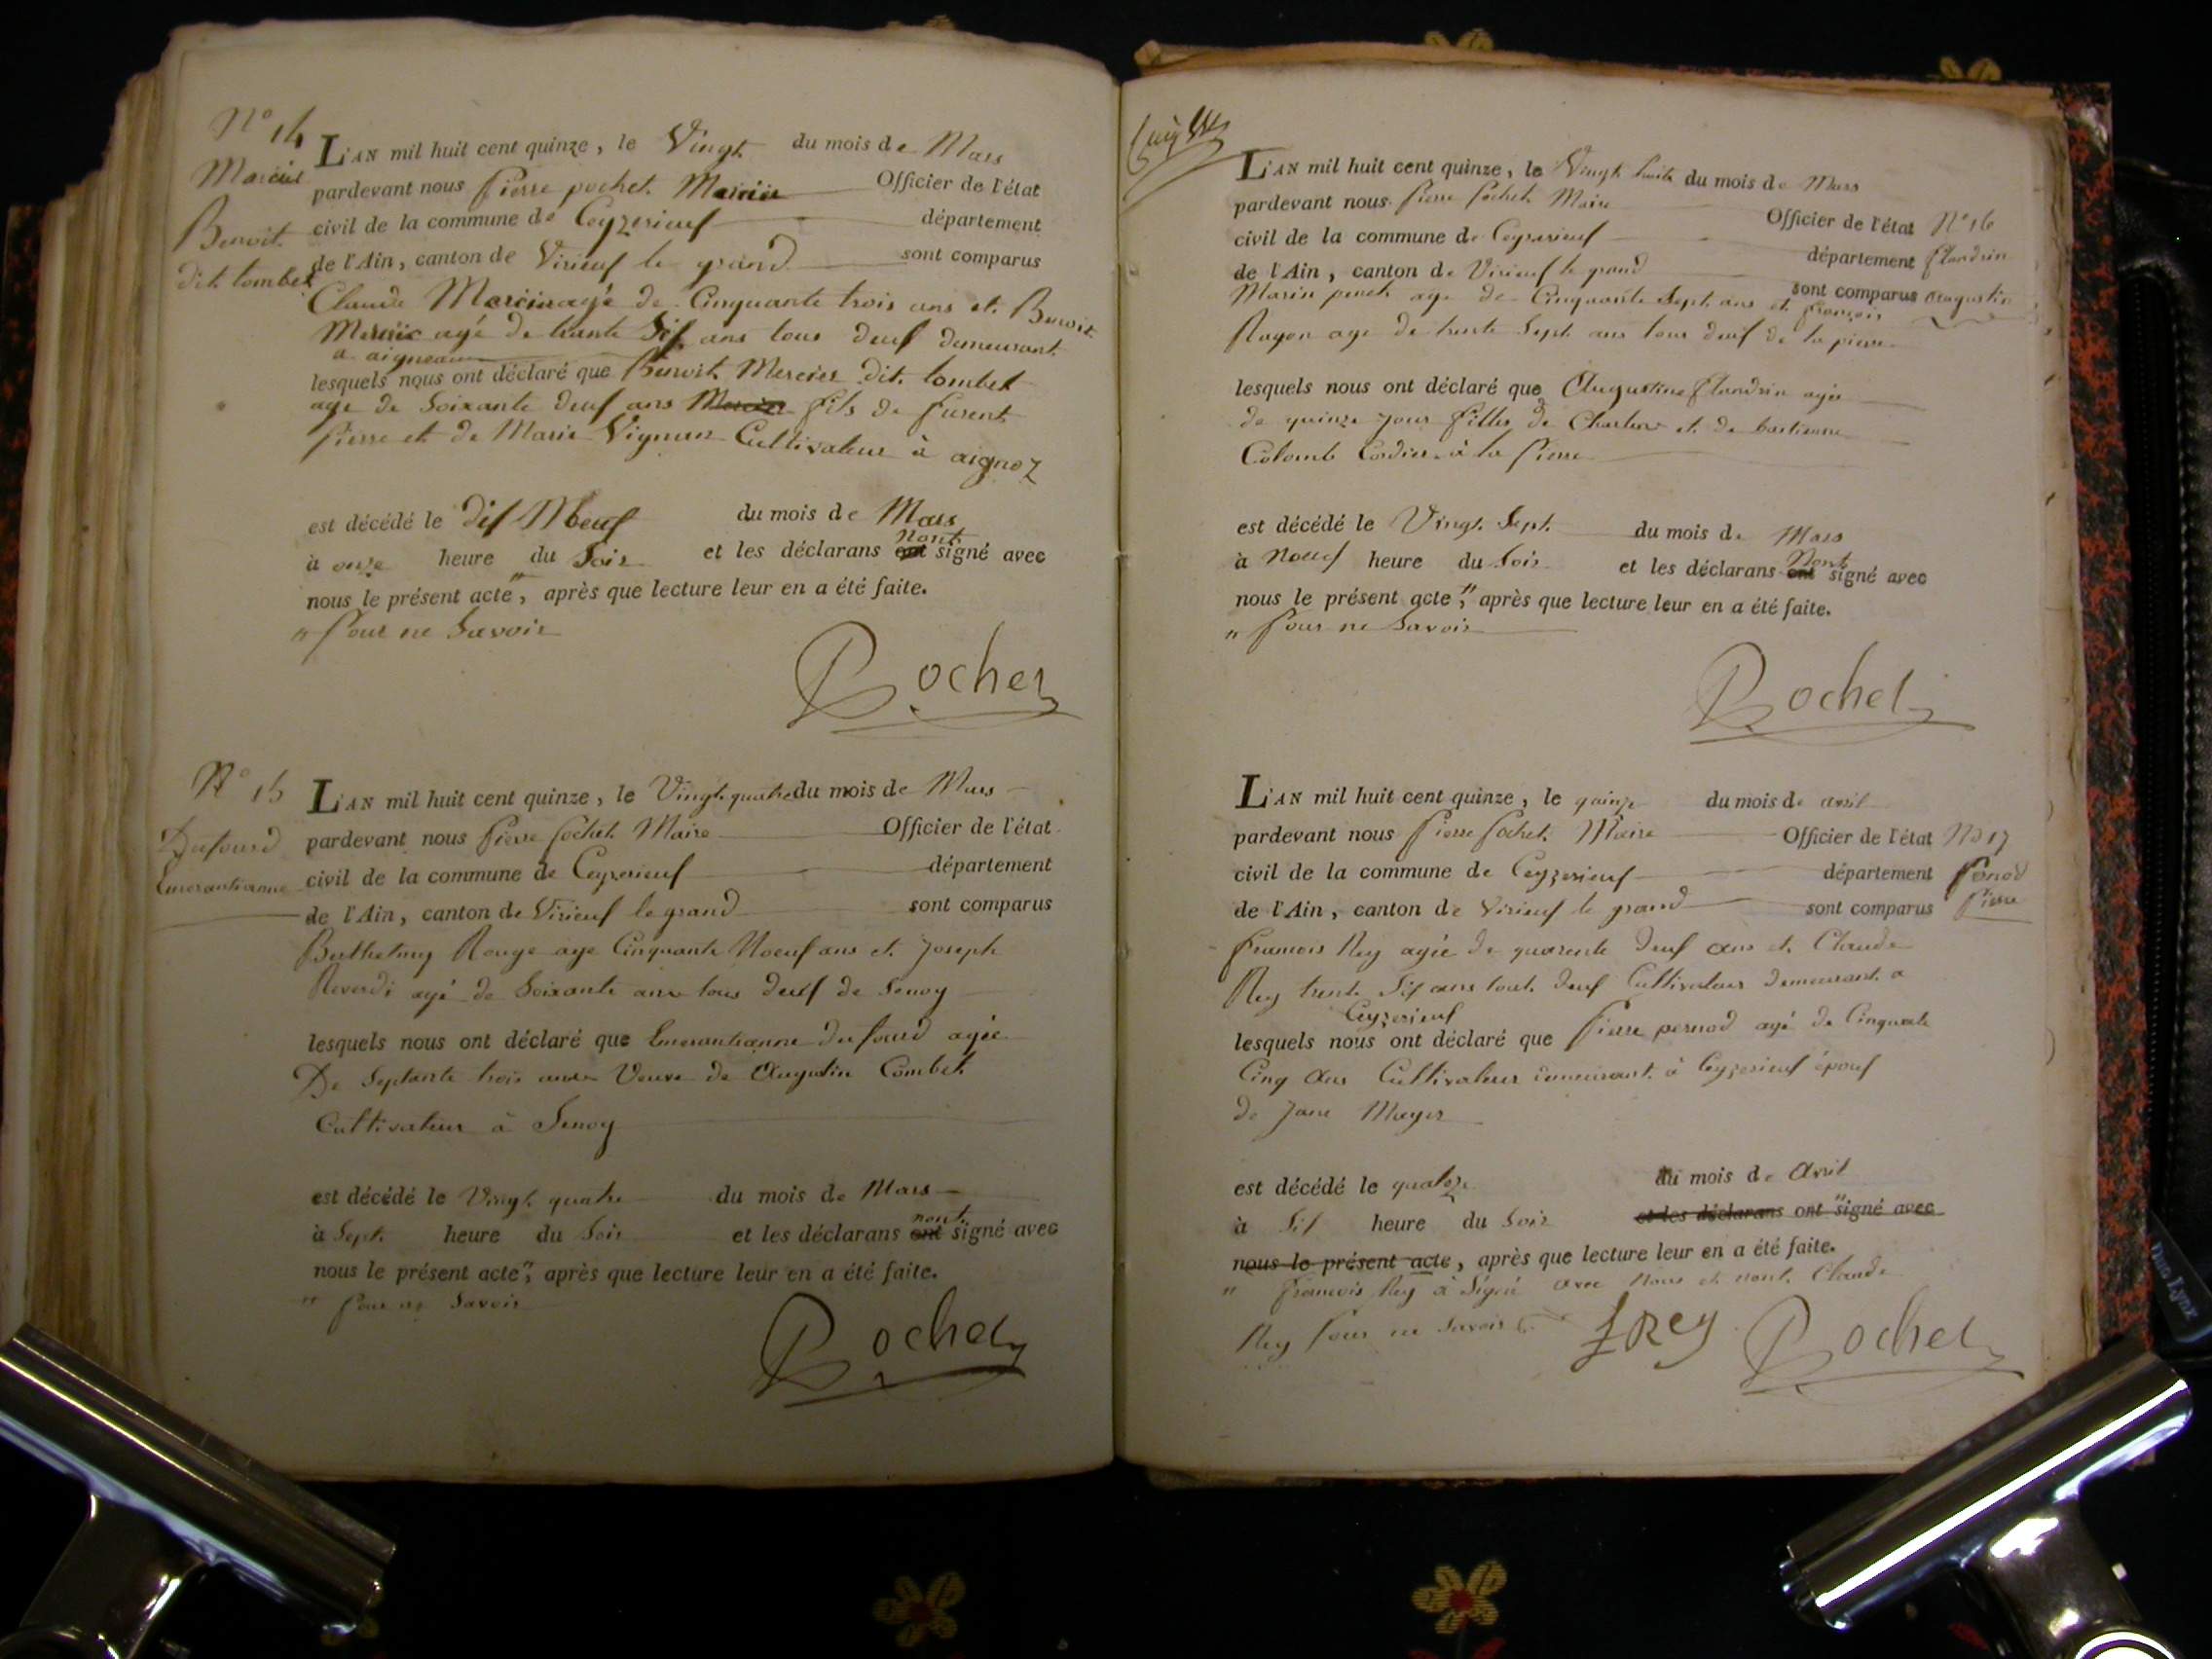 N° 14
Mercier
Benoit
dit Combet
L'AN mil huit cent quinze, le Vingt du mois de Mars
pardevant nous Pierre pochet Maire Officier de l'état
civil de la commune de Ceyzerieuf département
de l'Ain, canton de Virieuf le grand sont comparus
Claude Mercier agé de Cinquante trois ans et Benoit
Mercier agé de trante Sif ans tous deuf demeurant
a aigneau
lesquels nous ont déclaré que Benoit Mercier dit Combet
age de Soixante deuf ans Mercier fils de furent
Pierre et de Marie Vignun Cultivateur à aignoz
est décédé le dif Noeuf du mois de Mars
nont
à onze heure du Soir et les déclarans ont signé avec
nous le présent acte", après que lecture leur en a été faite.
" Pour ne Savoir
Pochet
N° 15
Dufourd
Emerantianne
L'AN mil huit cent quinze, le Vingt quatre du mois de Mars
pardevant nous Pierre Pochet Maire Officier de l'état
civil de la commune de Ceyzerieuf département
de l'Ain, canton de Virieuf le grand sont comparus
Berthelmy Rouge age Cinquante Noeuf ans et Joseph
Reverdi agé de Soixante ans tous deuf de Senoy
lesquels nous ont déclaré que Emerantianne Dufourd agée
De Septante trois ans Veuve de Augustin Combet
Cultivateur à Senoy
est décédé le Vingt quatre du mois de Mars
nont
à Sept heure du Soir et les déclarans ont signé avec
nous le présent acte", après que lecture leur en a été faite.
" Pour ne Savoir
Pochet
L'AN mil huit cent quinze, le Vingt huit du mois de Mars
pardevant nous Pierre Pochet Maire Officier de l'état
civil de la commune de Ceyzerieuf département
de l'Ain, canton de Virieuf le grand sont comparus
N° 16
flandrin
augustin
Marin age de Cinquante Sept ans et françois
Rayon age de trente Sept ans tous deuf de la pierre
lesquels nous ont déclaré que Augustine flandrin agée
de quinze jour fille de Charles et de bastienne
Colomb Cordier à la Pierre
est décédé le Vingt Sept du mois de Mars
Nont
à Noeuf heure du Soir et les déclarans ont signé avec
nous le présent acte", après que lecture leur en a été faite.
" Pour ne Savoir
Pochet
L'AN mil huit cent quinze, le quinze du mois de avril
pardevant nous Pierre Pochet Maire Officier de l'état
civil de la commune de Ceyzerieuf département
de l'Ain, canton de Virieuf le grand sont comparus
No 17
Pierre
francois Rey agée de quarente deuf ans et Claude
Rey trente Sif ans tout deuf Cultivateur demeurant a
Ceyzerieuf
lesquels nous ont déclaré que Pierre pernod agé de Cinquante
Cinq ans Cultivateur demeurant à Ceyzerieuf épouf
de Jane Mayer
est décédé le quatoze du mois de Avril
à Sif heure du Soir et les déclarans ont "signé avec
nous le présent acte, après que lecture leur en a été faite.
" francois Rey à Signé avec Nous et nont Claude
Rey Pour ne Savoir
f Rey Pochet